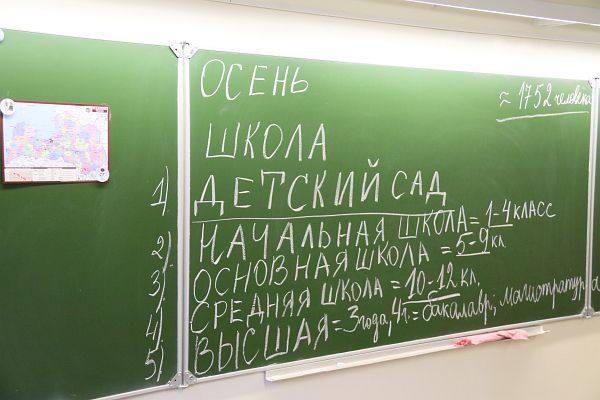 ОСЕНЬ
≈ 1752 человека
ШКОЛА
1) ДЕТСКИЙ САД
2) НАЧАЛЬНАЯ ШКОЛА = 1-4 КЛАСС
3) ОСНОВНАЯ ШКОЛА = 5-9 кл
4) СРЕДНЯЯ ШКОЛА = 10-12 кл.
5) ВЫСШАЯ = 3 года, 4 г. = бакалавр; магистратура